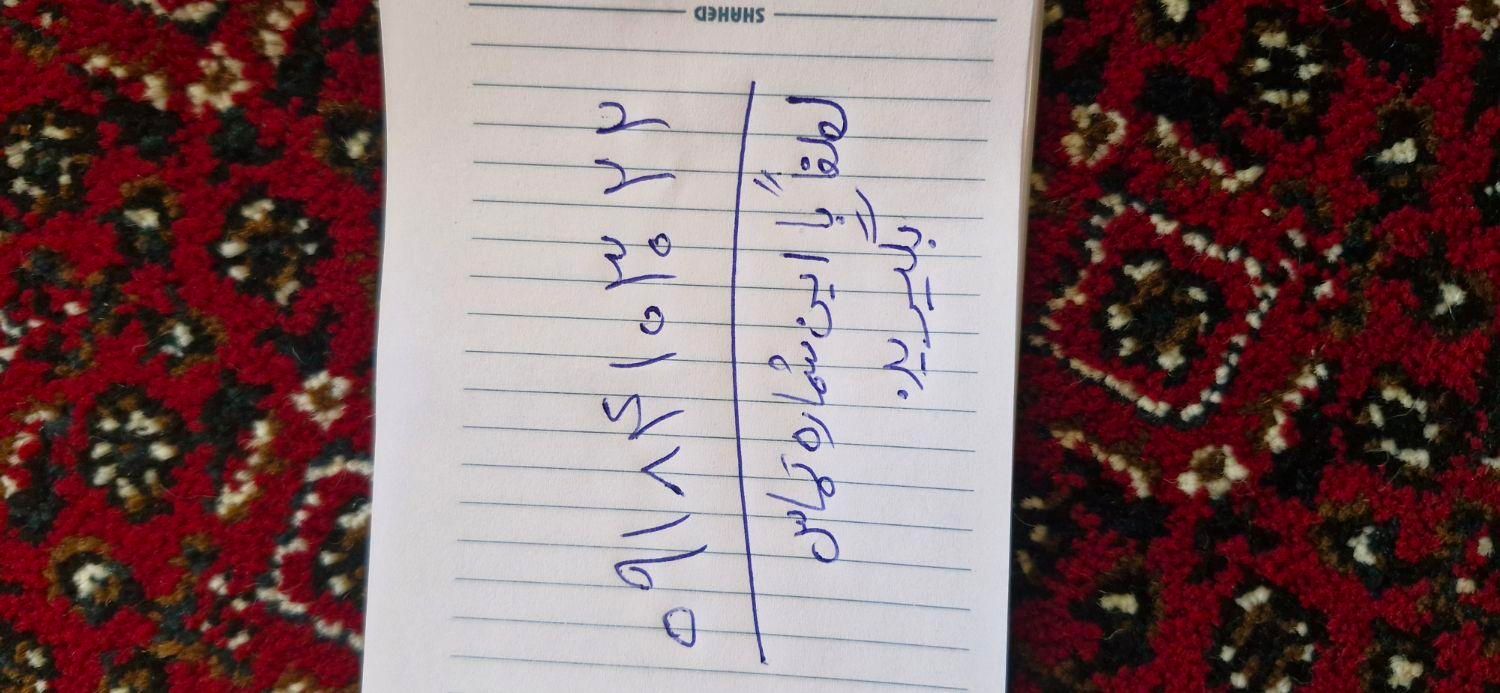 SHAHED
۰۹۱۸۴۱۰۳۰۲۲
لطفاً با این شماره تماس
بگیرید.